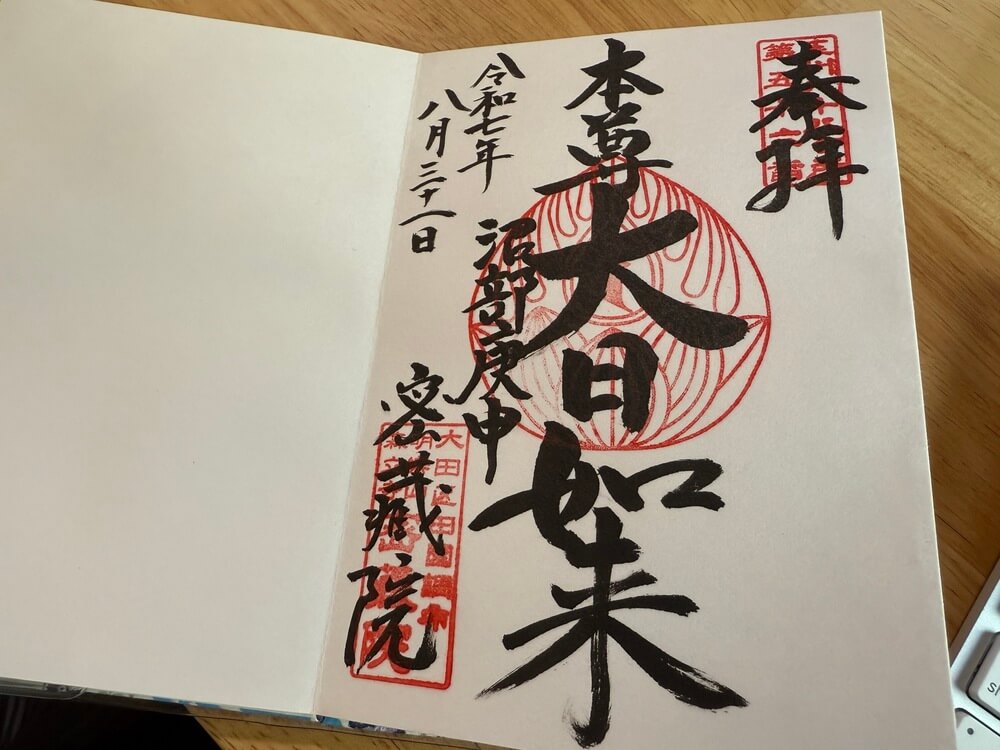 奉拝
本尊
大日如来
沼部庚申
令和七年
八月三十一日
密蔵院
大田区田園調布